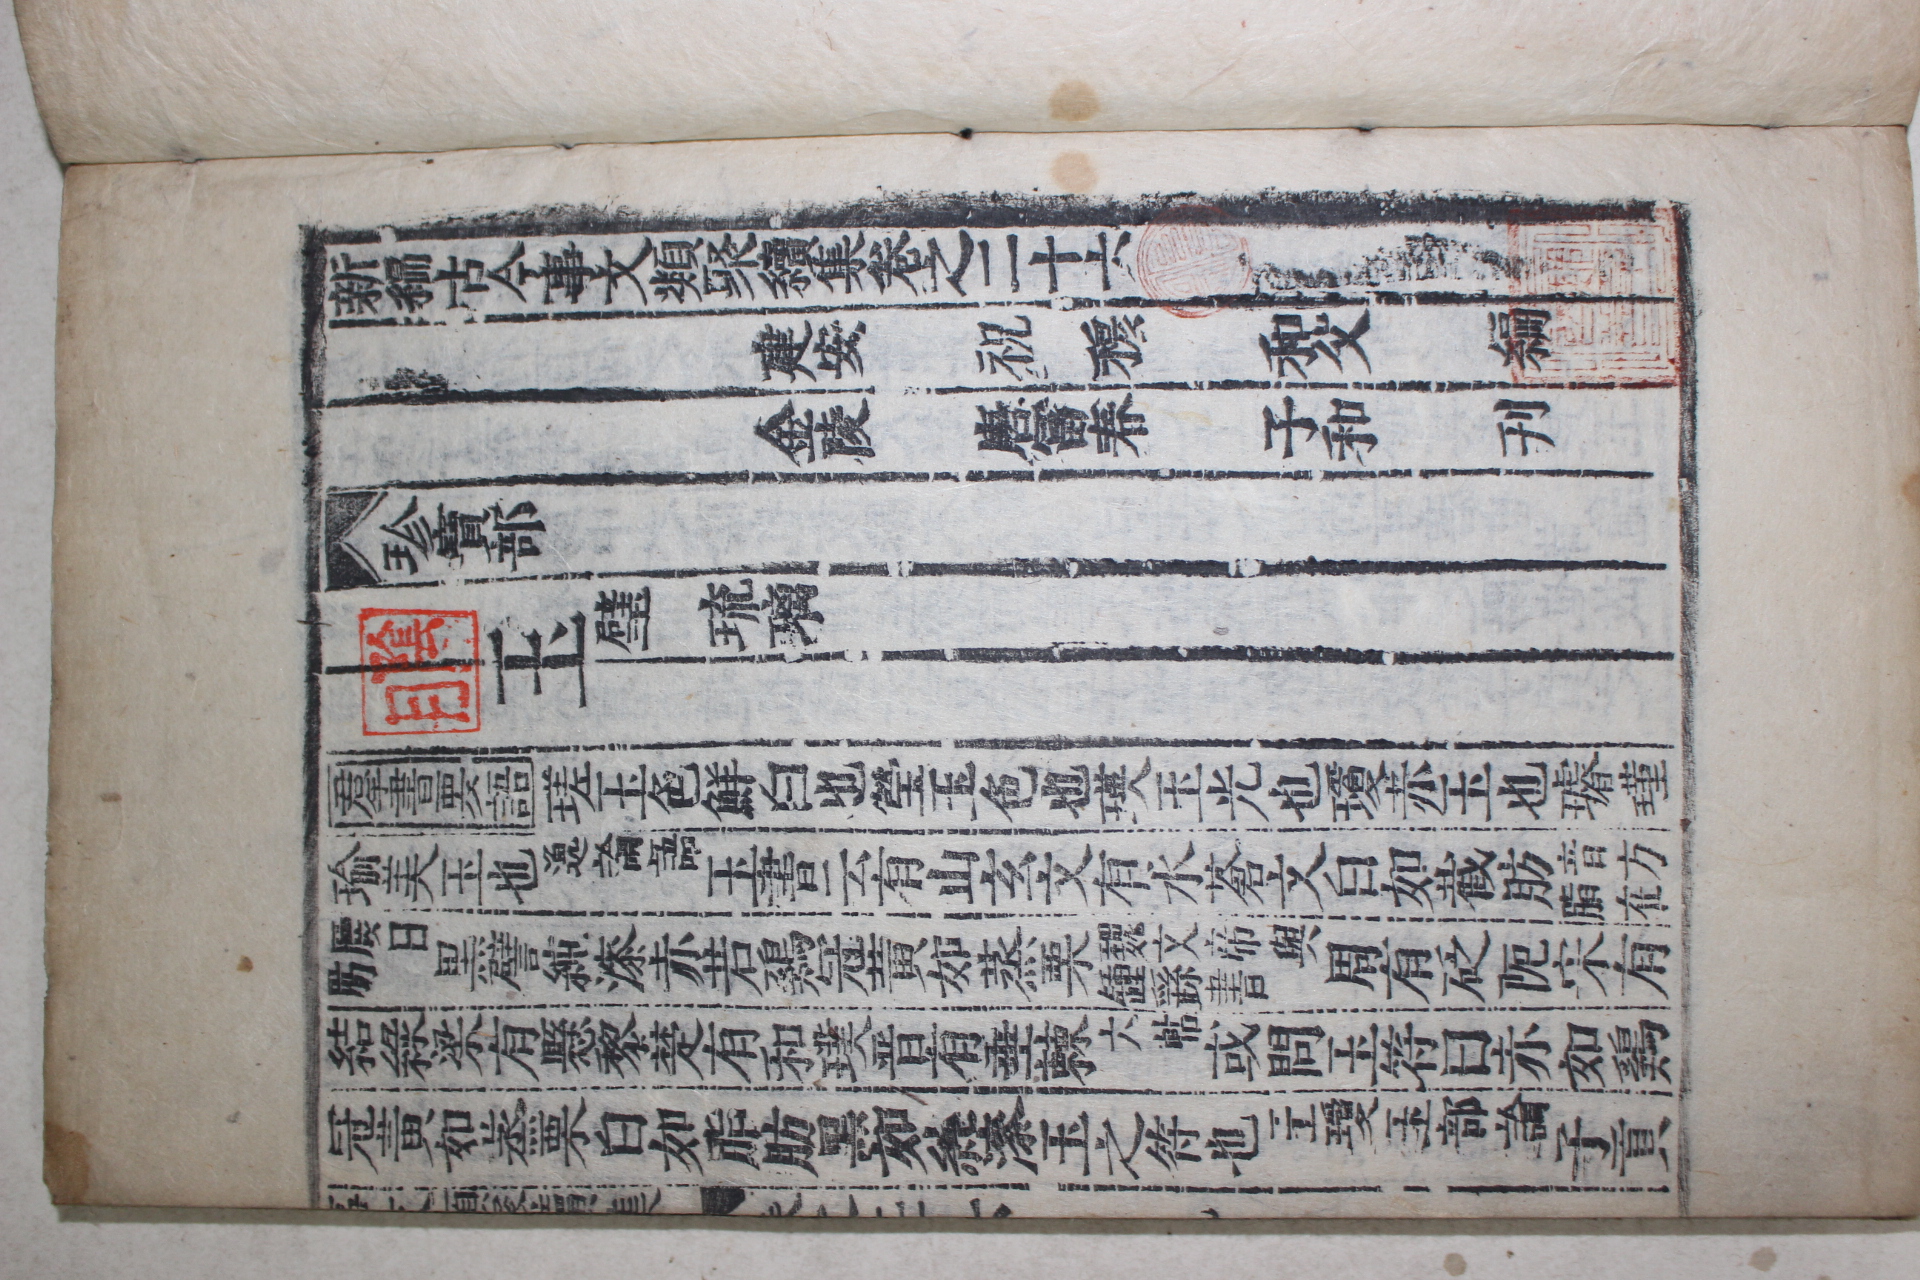 新編古今事文類聚續集卷之二十六
建安 祝 穆 和父 編
金陵 唐富春 子和 刊
珍寶部
璧 琉璃
玉
群書要語 瑳玉色鮮白也瑩玉色也瑛玉光也瓊赤玉也璿瑾
瑜美玉也逸論語玉書云有山玄文有水蒼文白如截肪音方脂在
腰曰肪黑譬純漆赤若鷄冠黃如蒸栗魏文帝與鍾繇書周有砥阨宋有
結綠梁有懸黎楚有和璞晋有垂棘六帖或問玉符曰赤如鷄
冠黃如蒸栗白如脂肪黑如純漆玉之符也王瓊玉部論子貢
陰月